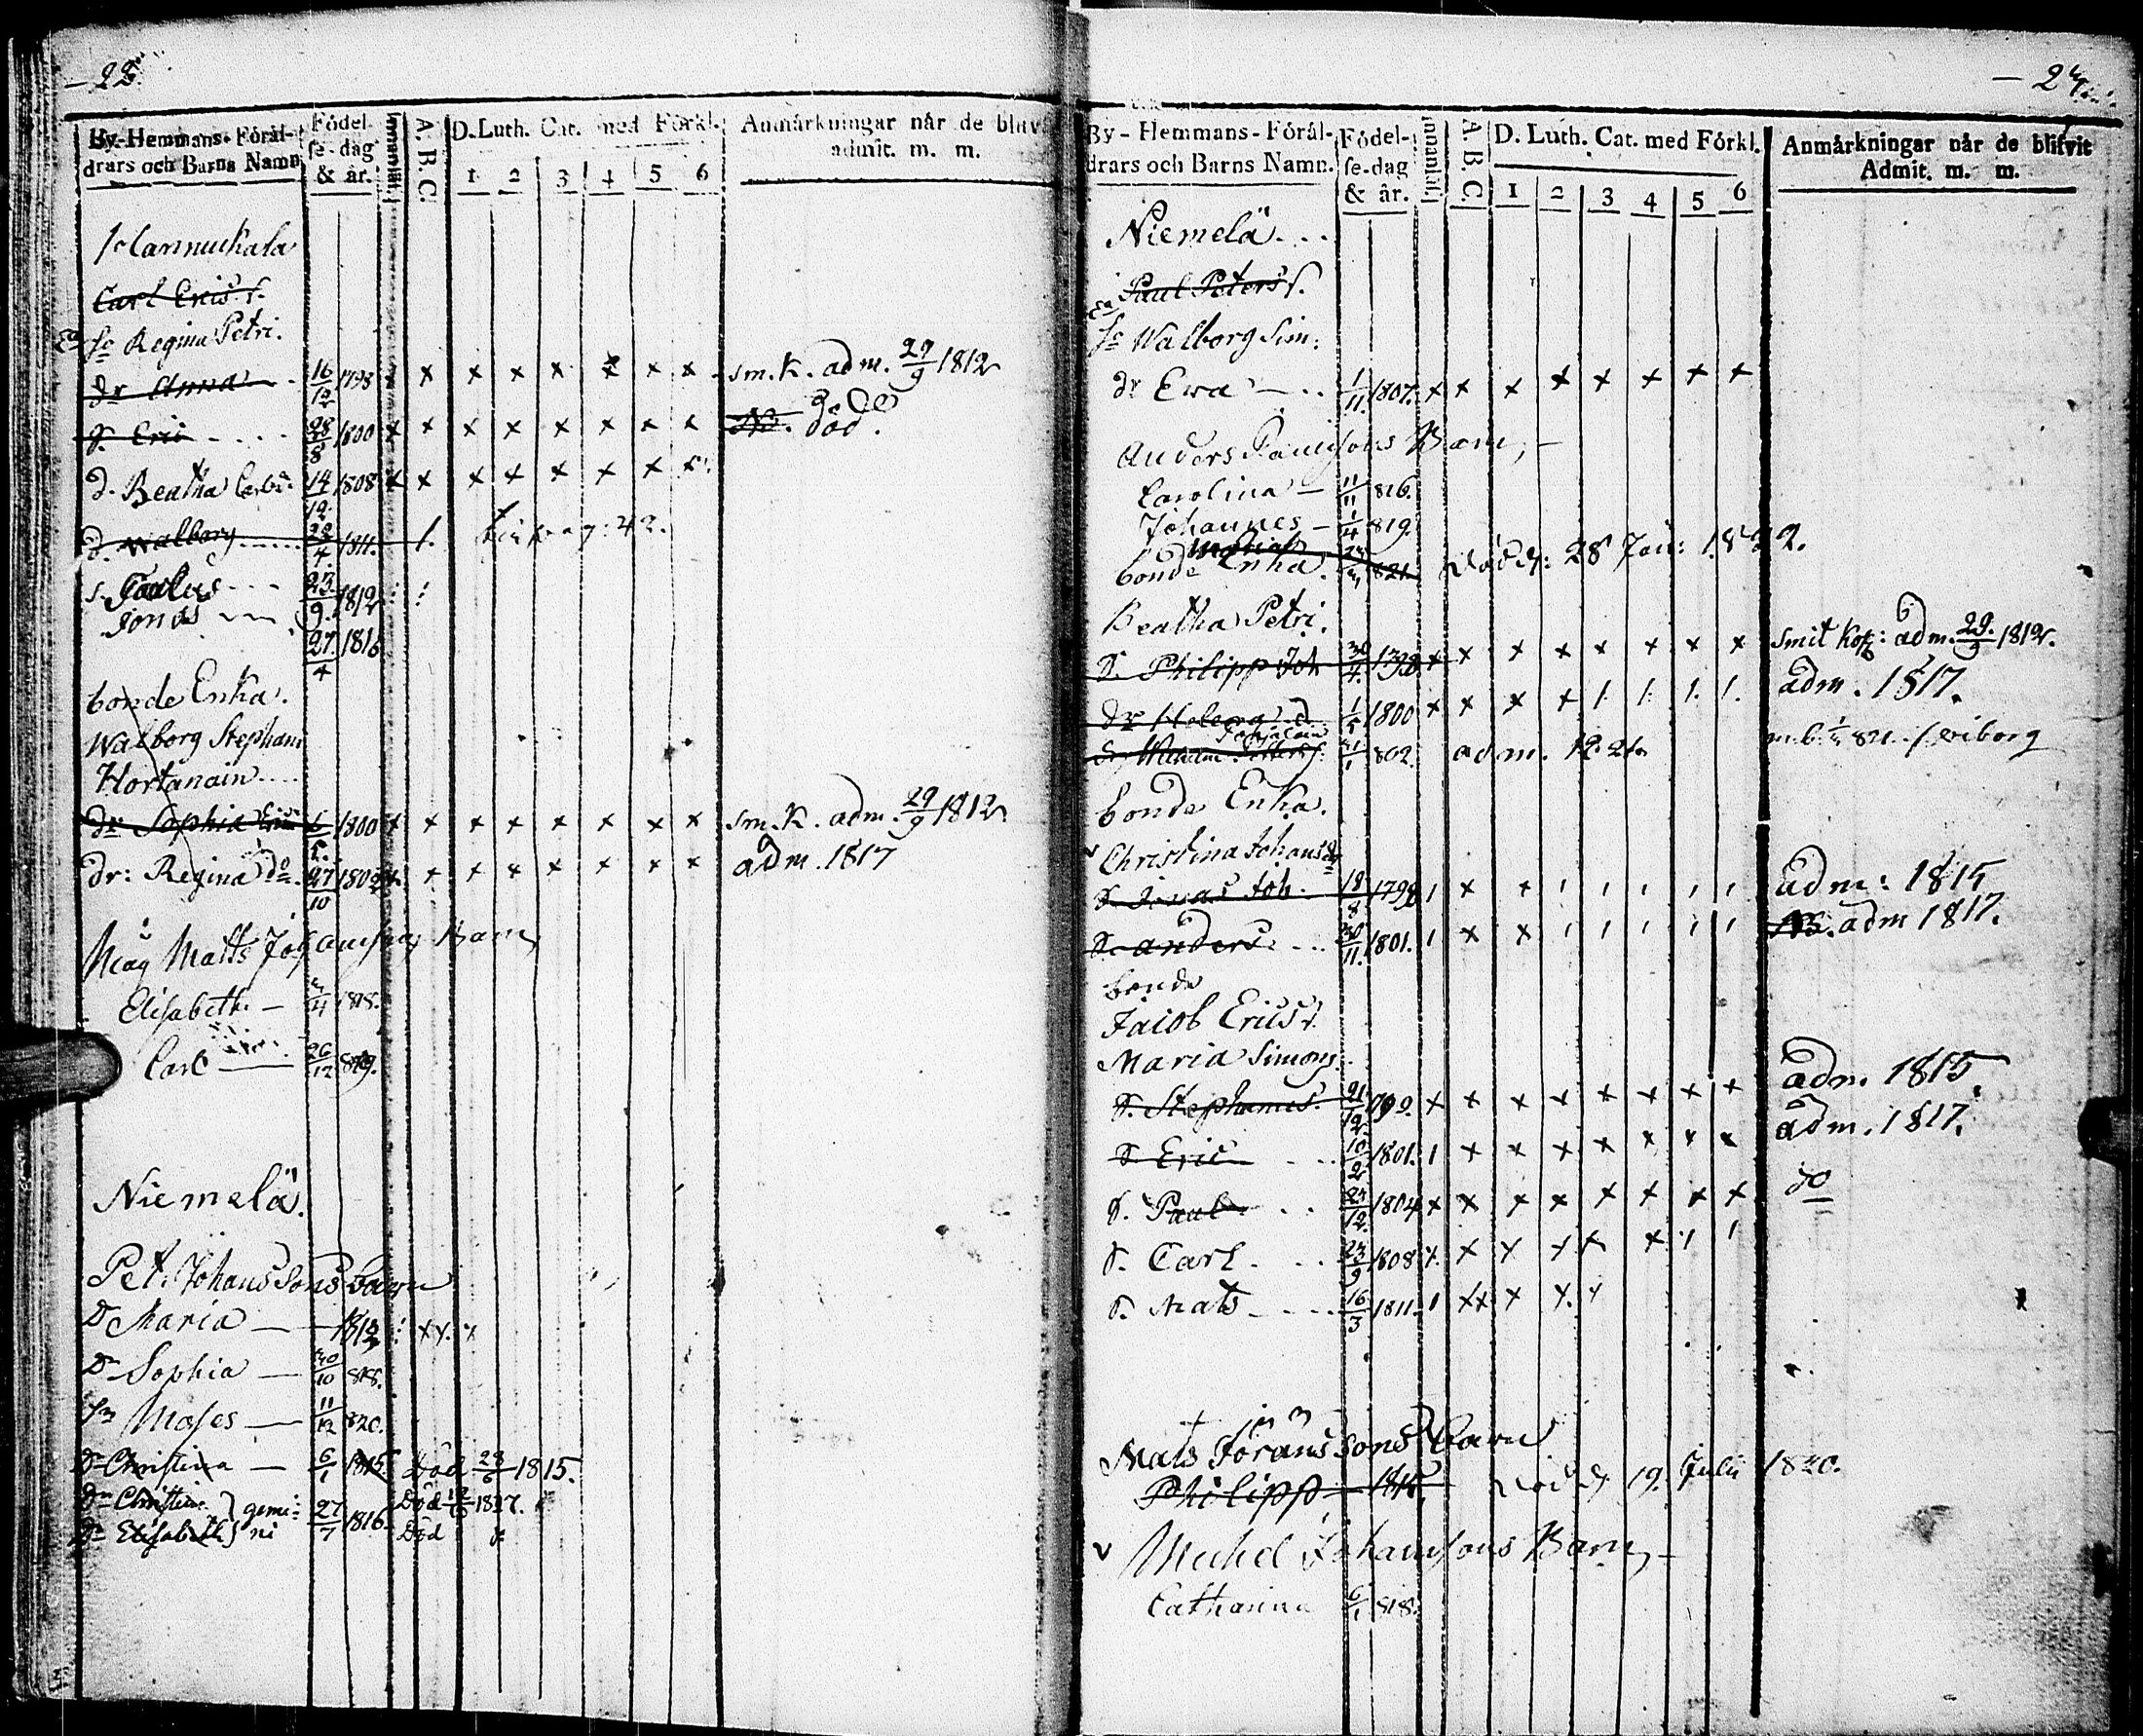 By-Hemmans-Föräl-drars och Barns Namn
Födel-se-dag & år.
Innanläs.
A. B. C.
D. Luth. Cat. med Förkl.
1 2 3 4 5 6
Anmärkningar när de blifvit admit. m. m.
Hannukala
Carl Erics s.
Regina Petri.
dr Anna 16/12 1798 x x x x x x x sm. K. adm. 29/9 1812
S. Eric 28/8 1800 x x x x x x x x No. död.
d. Beatha 14/12 1808 x x x x x x x
d. Walborg 23/4 1811.
s. Paulus 23/9 1812
Jonas 27/4 1816
bonde Enka.
Walborg Stephani
Hortanain
dr Sophia 1800 x x x x x x x x sm. K. adm. 29/9 1812
dr: Regina do 27/10 1802 x x x x x x x adm. 1817
Måg Matts Johansons Barn
Elisabeth — 1818.
Carl — 26/12 819.
Niemelä.
Pet. Johanssons barn
Dr Maria — 1812 x x x
Dr Sophia — 30/10 818.
Sn Moses — 11/12 820.
Dr Christina — 6/1 1815. Död 28/6 1815.
Dr Christina } gemi- 27/7 1816 Död 1827.
Dr Elisabeth } ni Död
24
By-Hemmans-Föräl-drars och Barns Namn.
Födel-se-dag & år.
Innanläs.
A. B. C.
D. Luth. Cat. med Förkl.
1 2 3 4 5 6
Anmärkningar när de blifvit Admit. m. m.
Niemelä
Paul Peters s.
Walborg Sim:
dr Ewa 1/11 1807. x x x x x x x x
Anders Paulssons Barn,
Carolina — 11/11 816.
Johannes — 1/4 819.
Mathias 821. död d: 28 Jan: 1822.
bonde Enka.
Beatha Petri.
S. Philipp Joh 30/4 1798 x x x x x x x x smit kop: adm. 29/9 1812.
dr Helena 1800 x x x x 1. 1. 1. 1. adm. 1817.
802. adm. 1821. 821. Wiborg
bonde Enka.
Christina Johans
S. Jonas Joh. 18/8 1798 1 x x 1 1 1 1 1 adm: 1815
S. Anders 30/11 1801. 1 x x 1 1 1 1 1 No. adm 1817.
bonde
Jacob Erics s.
Maria Simons.
S. Stephanus. 21/12 1799. x x x x x x x x adm. 1815.
S. Eric 10/2 1801. 1 x x x x x x x adm. 1817.
S. Paul 24/12 1804 x x x x x x x x do
S. Carl 23/9 1808 x. x x x x x 1 1
S. Mats 16/3 1811. 1 xx x x. x
Mats Göranssons Barn
Philipp — död d. 19. Julii 1820.
Michel Johansons Barn
Catharina 6/1 818.